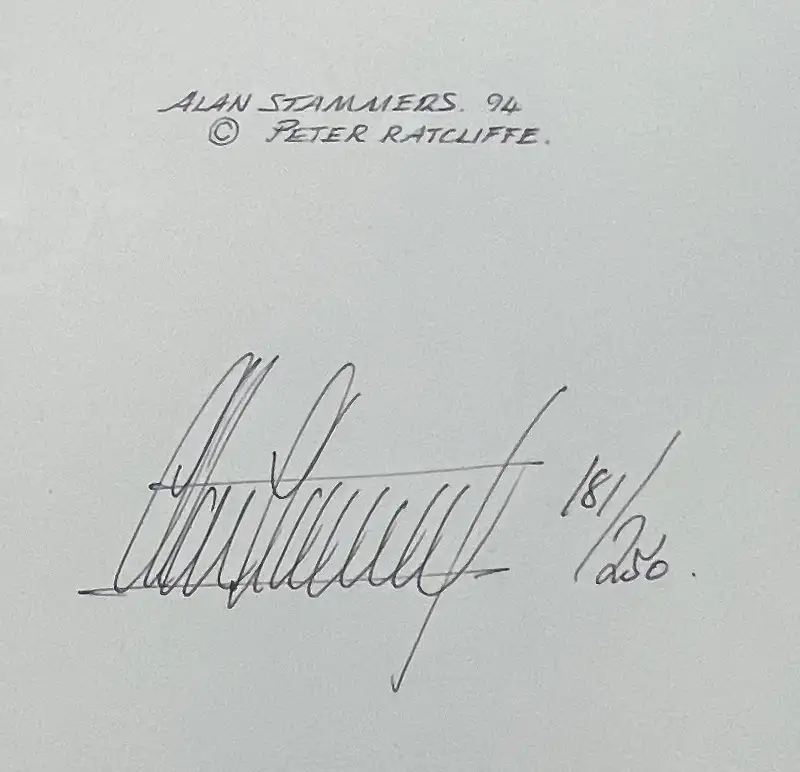 ALAN STAMMERS. 94
© PETER RATCLIFFE.
181/250.